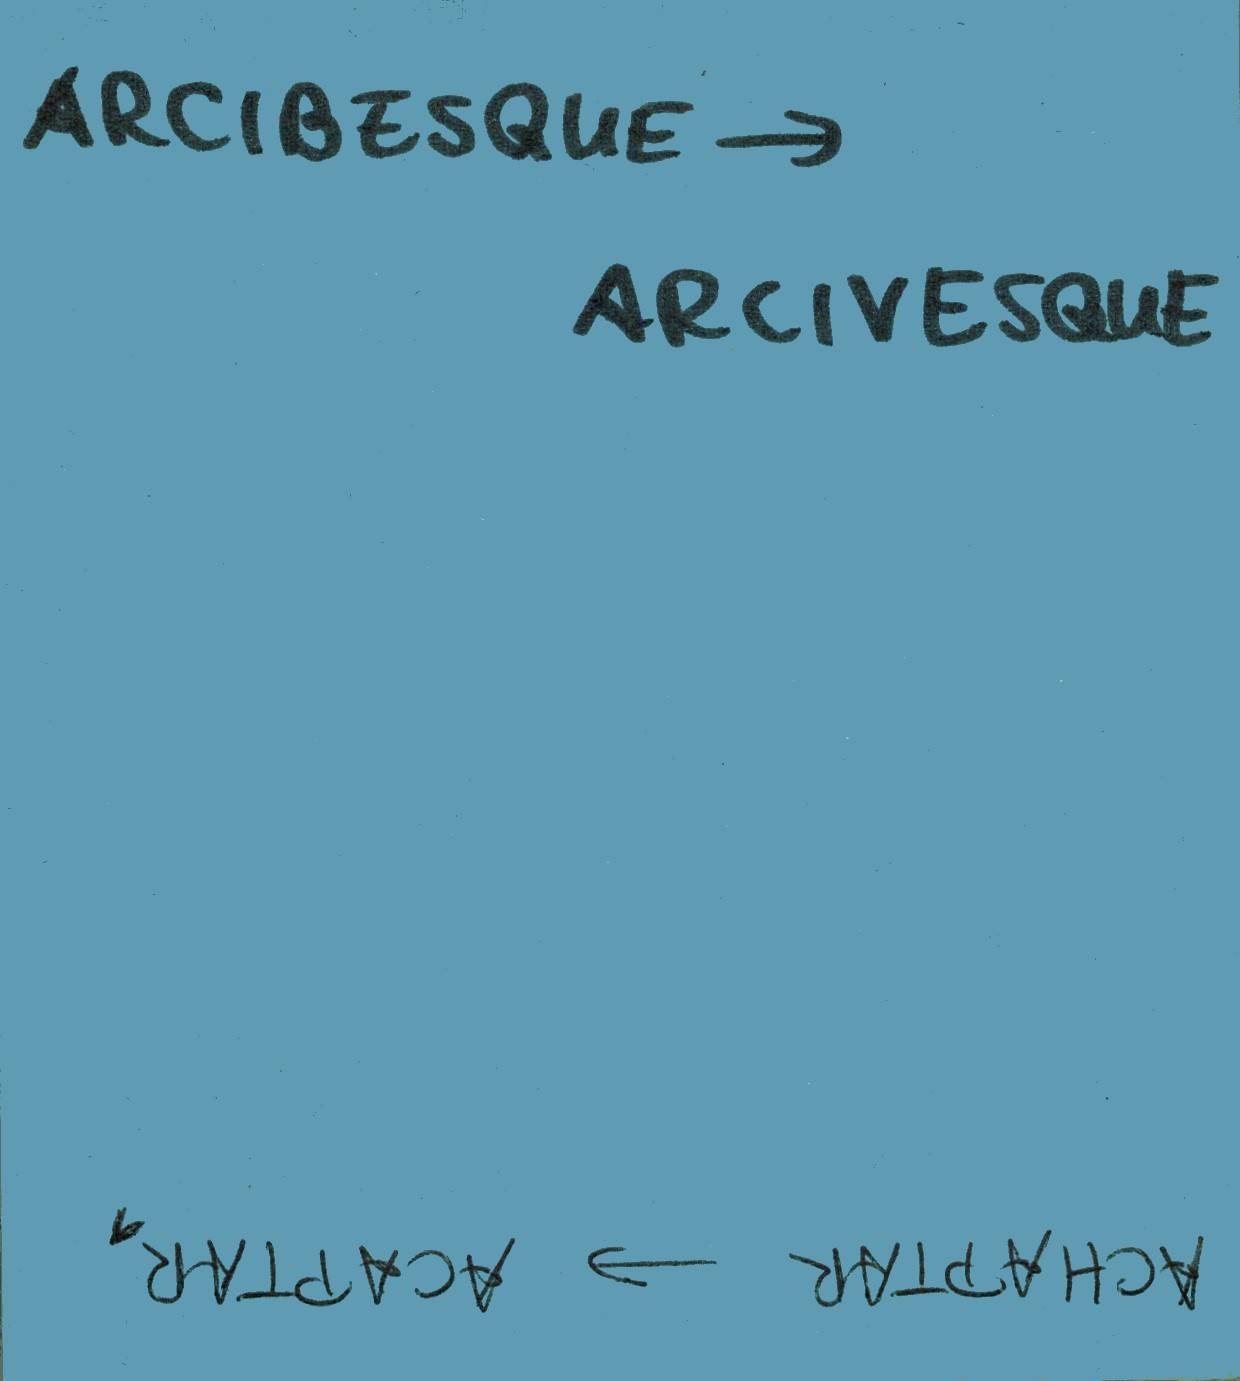 ARCIBESQUE →
ARCIVESQUE
ACHAPTAR → ACAPTAR